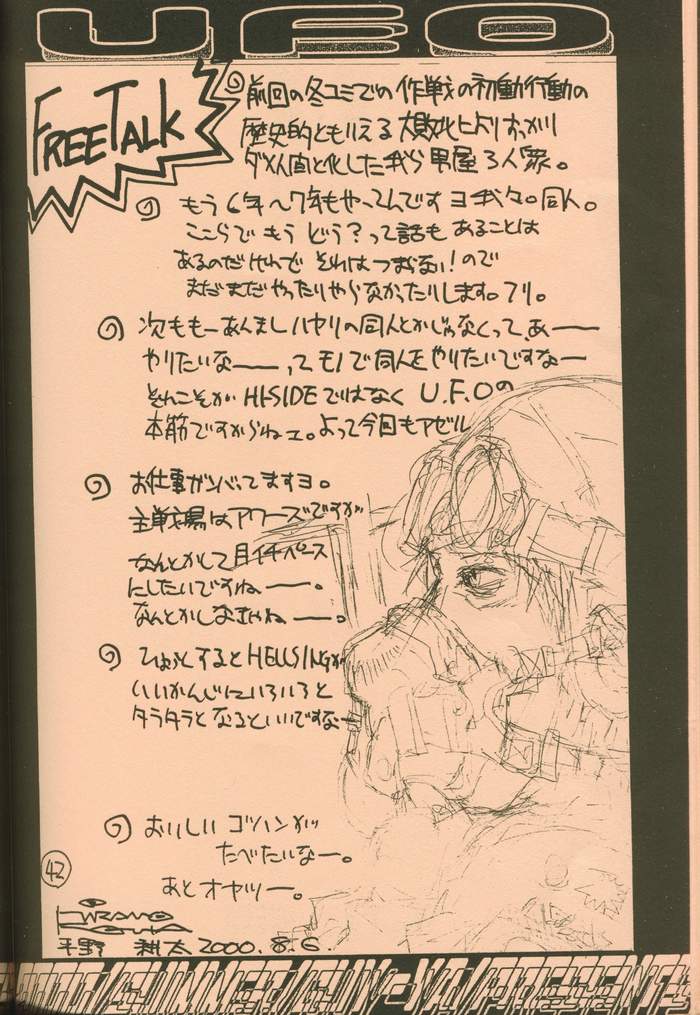 UFO
FREE TALK
前回の冬コミでの作戦の初動行動の
歴史的ともいえる大敗北によりすっかり
ダメ人間と化した我ら男屋3人衆。
もう6年〜7年もやってんですヨ我々。同人。
ここらでもうどう?って話もあることは
あるのだけれど それはつまらない!ので
まだまだやったりやらなかったりします。フリ。
次ももーあんましハヤリの同人とかじゃなくって、あーー
やりたいなーーってモノで同人をやりたいですなー
それこそが HI-SIDEではなく U.F.Oの
本筋ですからねェ。よって今回もアゼル
お仕事ガンバってますヨ。
主戦場はアワーズですが
なんとかして月イチペース
にしたいですねー。
なんとかしなきゃねー。
ひょっとするとHELLSINGが
いいかんじにいろいろと
タラタラとなるといいですなー
おいしいゴハンが
たべたいなー。
あとオヤツー。
42
HIRANO
KOUTA
平野 耕太 2000.8.6.